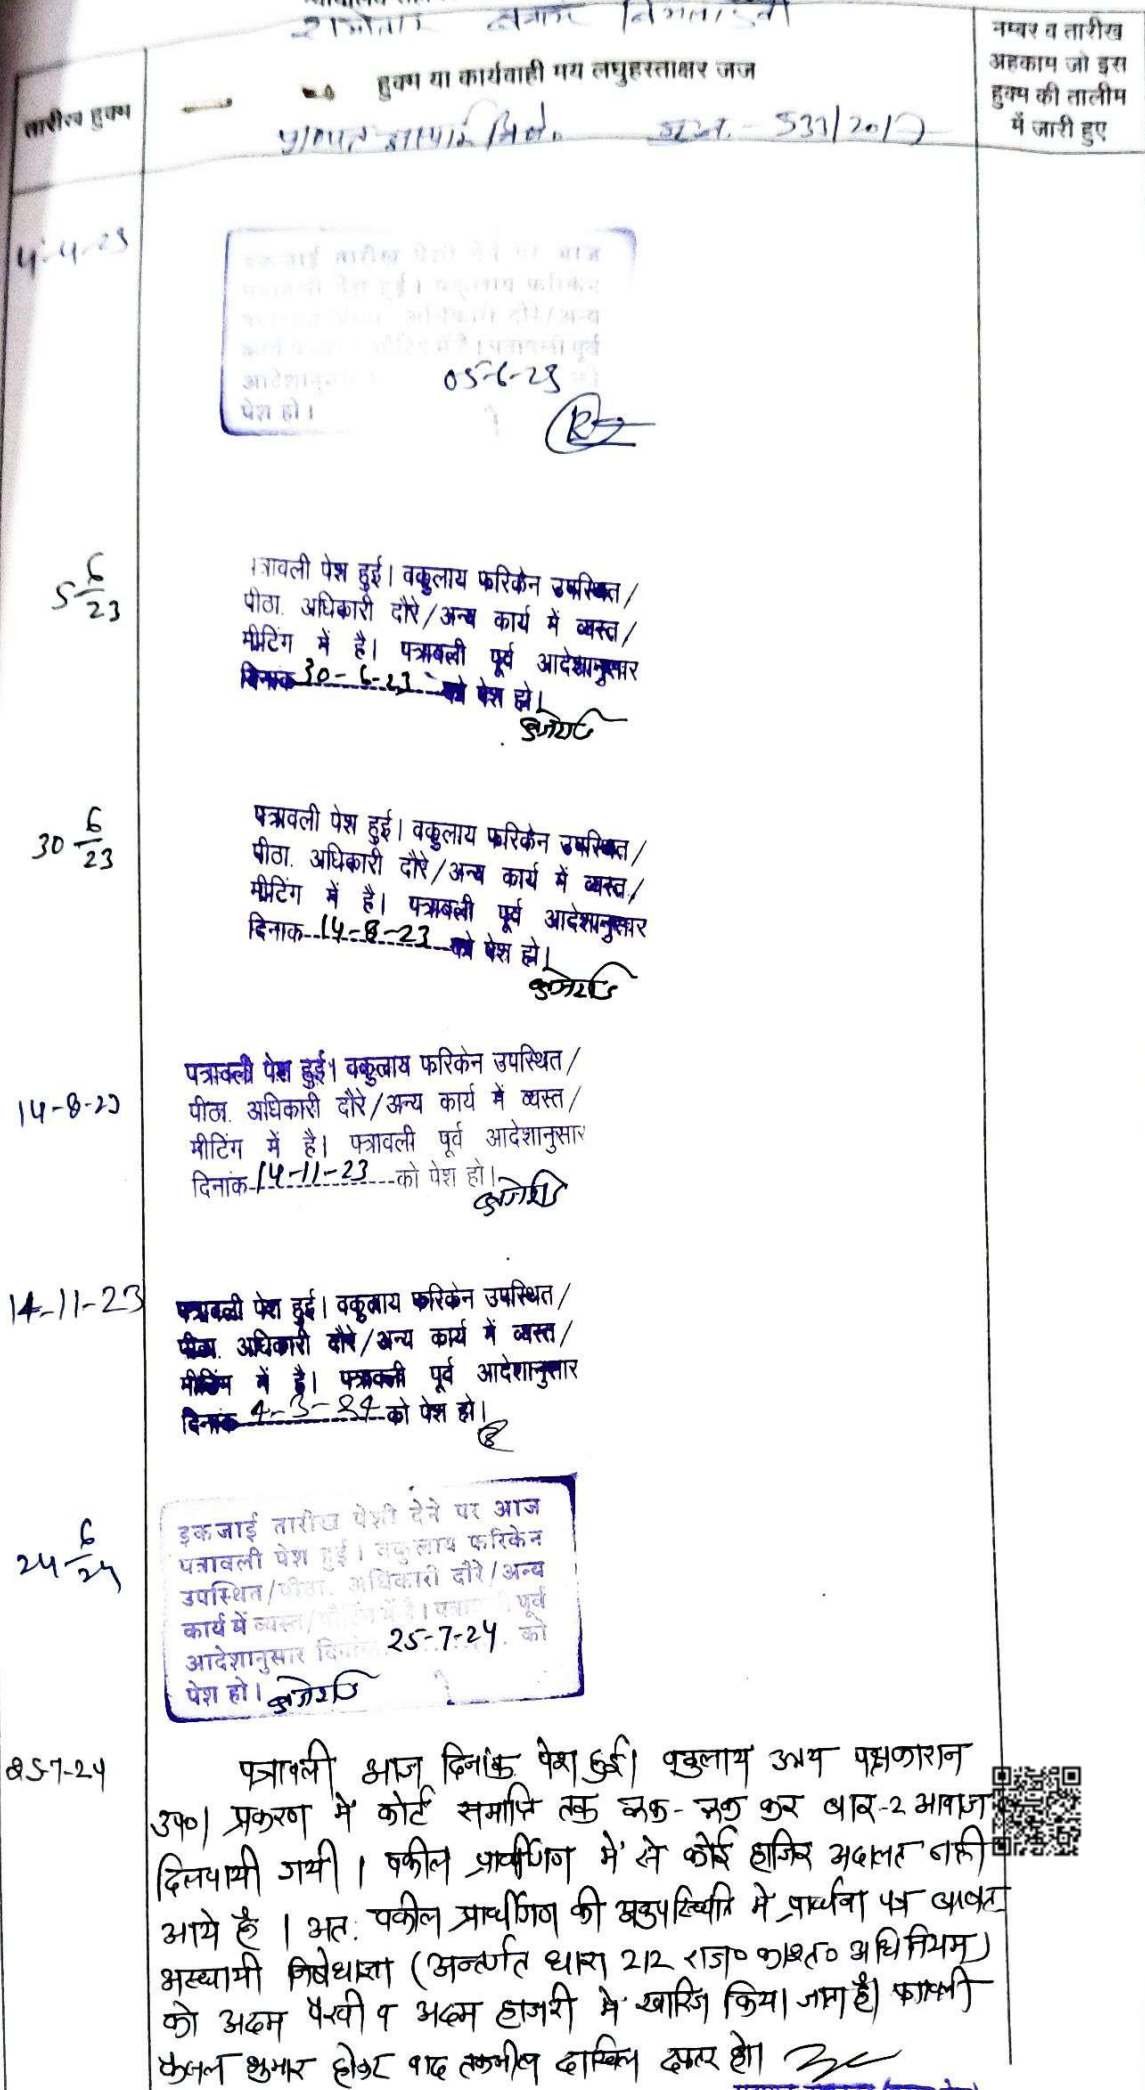 नम्बर व तारीख
अहकाम जो इस
हुक्म की तालीम
में जारी हुए
तारीख हुक्म
हुक्म या कार्यवाही मय लघुहस्ताक्षर जज
4-4-23
आदेशानु
05-6-23
पेश हो।
5 6/23
त्रावली पेश हुई। वकुलाय फरिकेन उपस्थित/
पीठा. अधिकारी दौरे/अन्य कार्य में व्यस्त/
मीटिंग में है। पत्रावली पूर्व आदेशानुसार
दिनांक 30-6-23 को पेश हो।
30 6/23
पत्रावली पेश हुई। वकुलाय फरिकेन उपस्थित/
पीठा. अधिकारी दौरे/अन्य कार्य में व्यस्त/
मीटिंग में है। पत्रावली पूर्व आदेशानुसार
दिनांक 14-8-23 को पेश हो।
14-8-23
पत्रावली पेश हुई। वकुलाय फरिकेन उपस्थित/
पीठा. अधिकारी दौरे/अन्य कार्य में व्यस्त/
मीटिंग में है। पत्रावली पूर्व आदेशानुसार
दिनांक 14-11-23 को पेश हो।
14-11-23
पत्रावली पेश हुई। वकुलाय फरिकेन उपस्थित/
पीठा. अधिकारी दौरे/अन्य कार्य में व्यस्त/
मीटिंग में है। पत्रावली पूर्व आदेशानुसार
दिनांक 4-3-24 को पेश हो।
24 6/24
इकजाई तारीख पेशी देने पर आज
पत्रावली पेश हुई। वकुलाय फरिकेन
उपस्थित/पीठा. अधिकारी दौरे/अन्य
कार्य में व्यस्त/मीटिंग में है। पत्रा पूर्व
आदेशानुसार दिनांक 25-7-24 को
पेश हो।
25-7-24
पत्रावली आज दिनांक पेश हुई। वकुलाय उभय पक्षकारान
उप०। प्रकरण में कोर्ट समाप्ति तक रूक-रूक कर बार-2 आवाज
दिलवायी गयी। वकील प्रार्थीगण में से कोई हाजिर अदालत नही
आये है। अत: वकील प्रार्थीगण की अनुपस्थिति मे प्रार्थना पत्र बाबत
अस्थायी निषेधाज्ञा (अन्तर्गत धारा 212 राज० काश्त० अधिनियम)
को अदम पैरवी व अदम हाजरी में खारिज किया जाता है। पत्रावली
फैसल शुमार होकर बाद तकमील दाखिल दफ्तर हो।